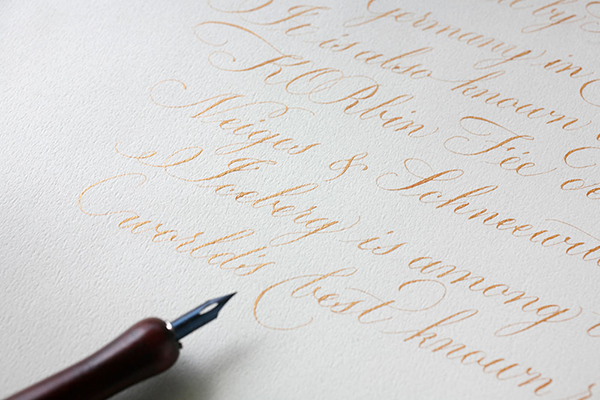 by
Germany in
It is also known
KORbin Fée de
Neiges & Schneewit
Iceberg is among
world's best known